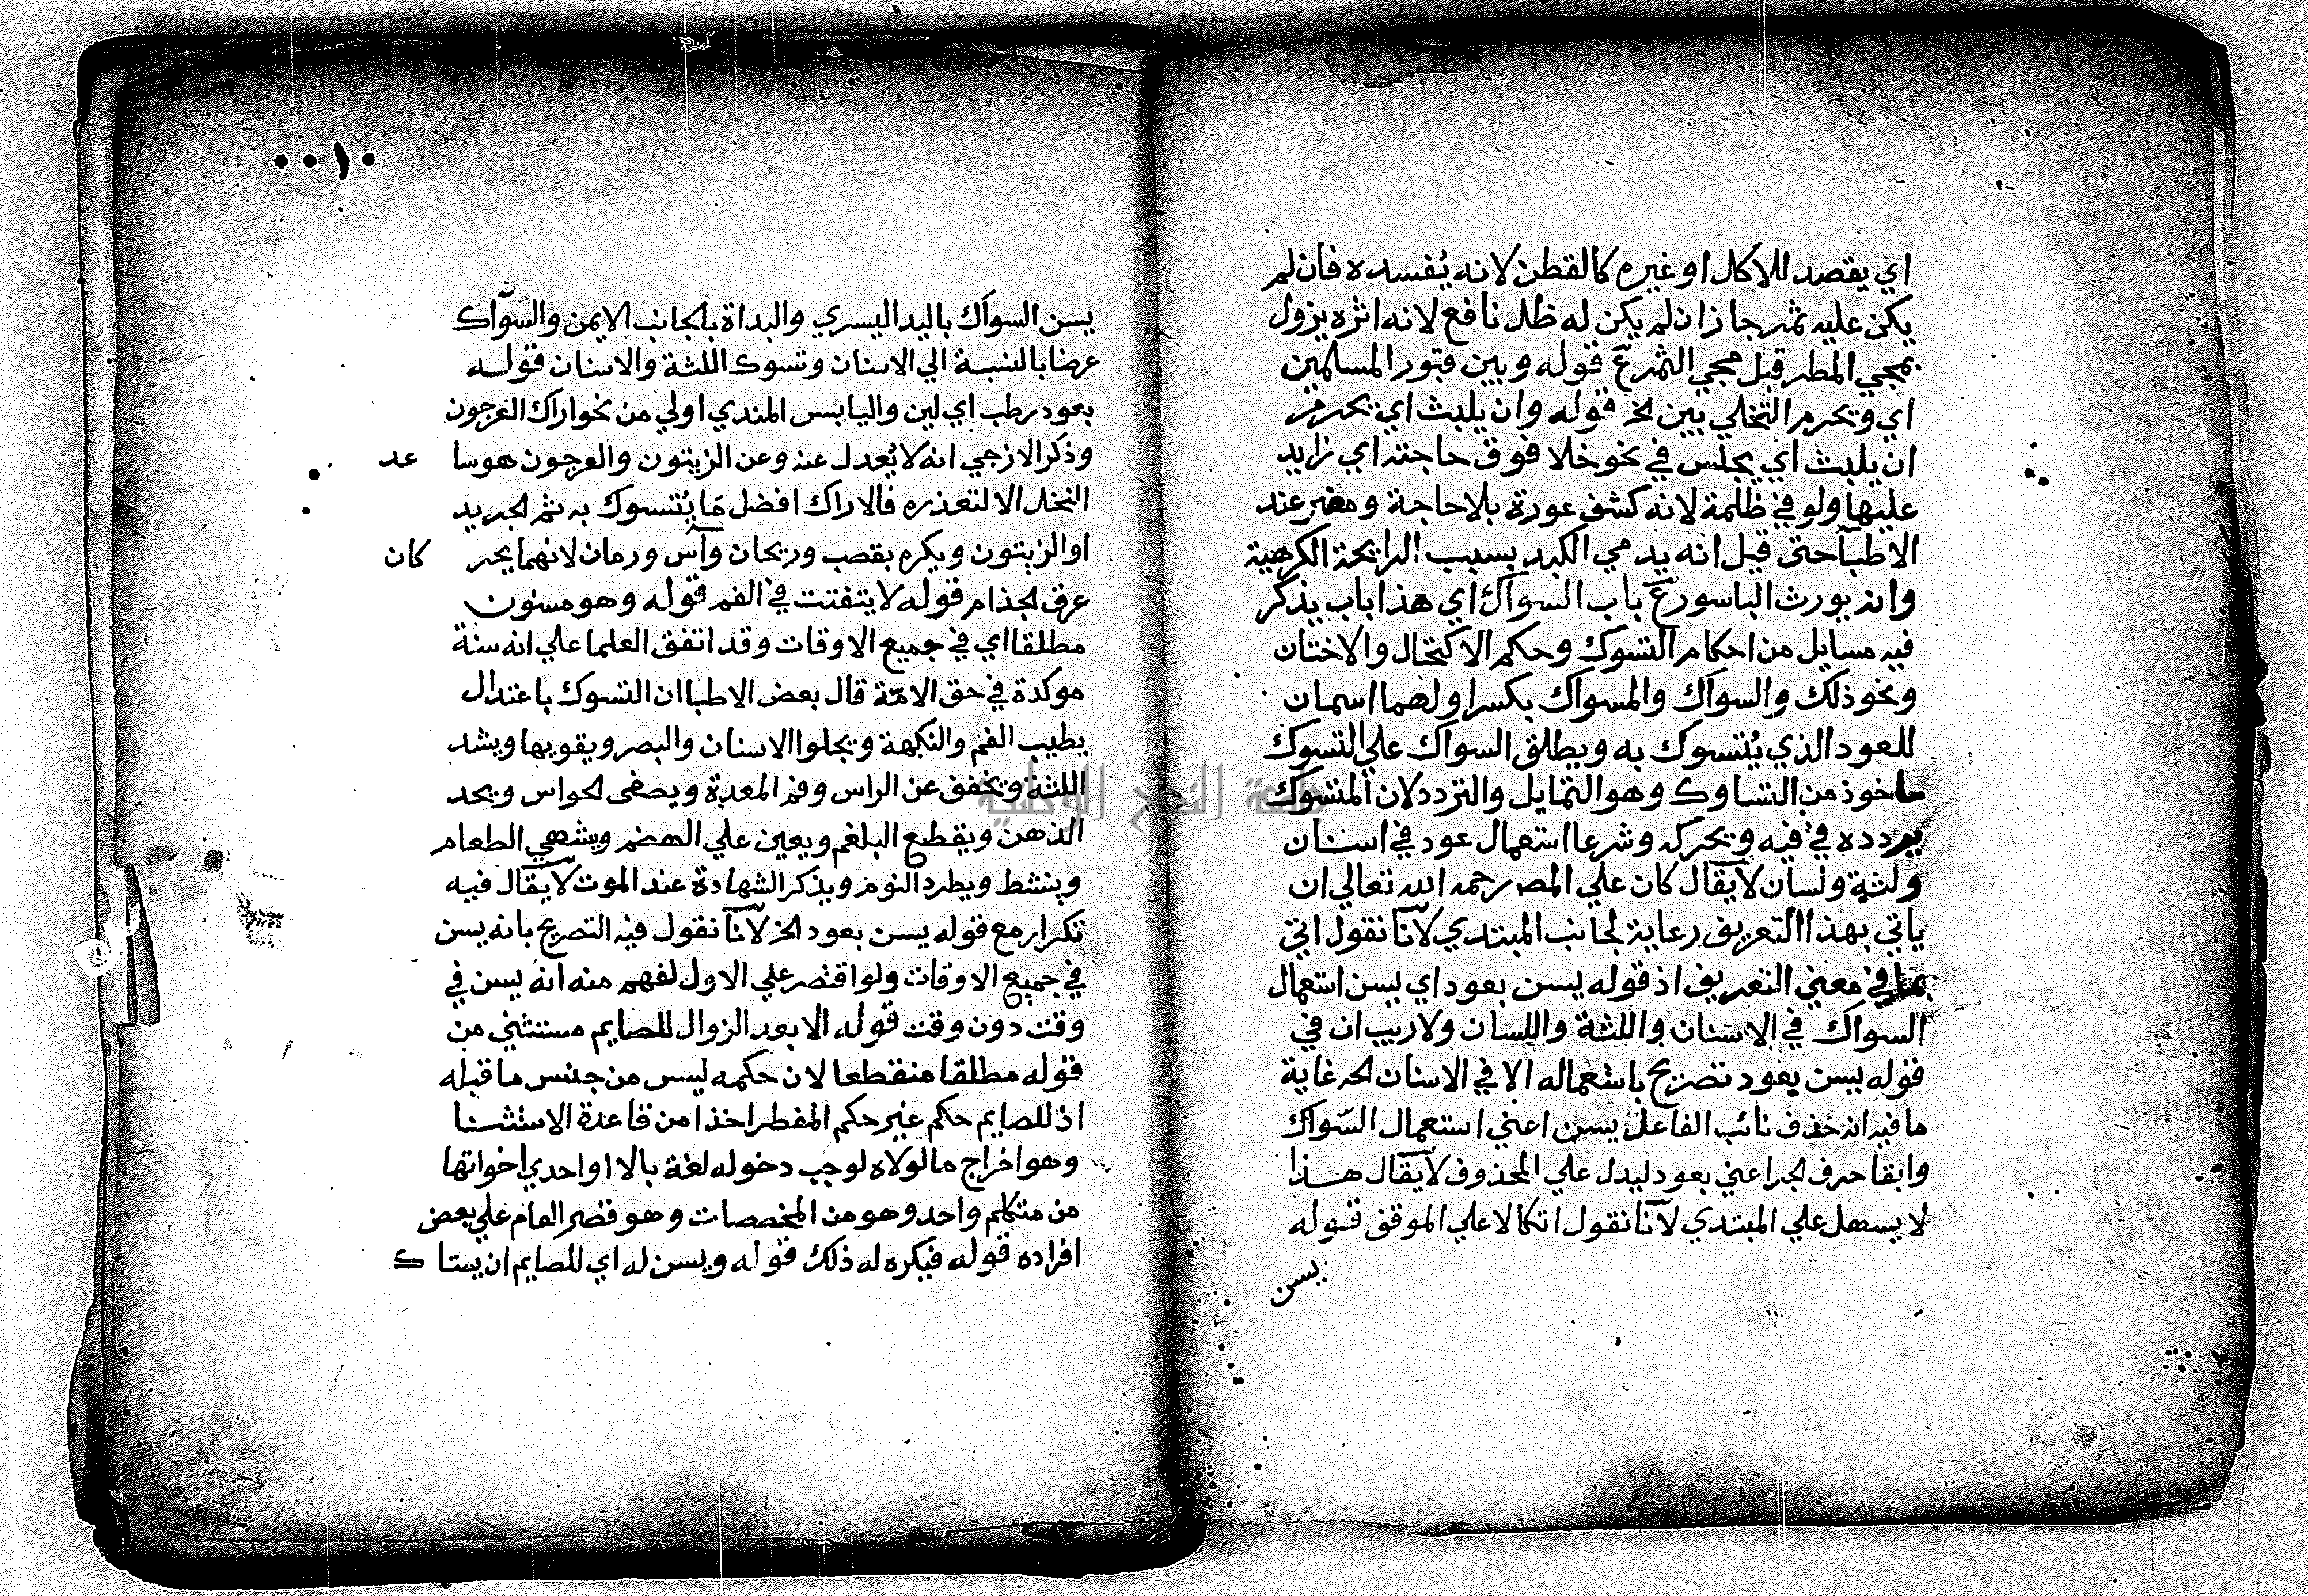 اي يقصد للاكل او غيره كالقطن لانه يُفسده فان لم
يكن عليه ثمر جاز ان لم يكن له ظل نافع لانه اثره يزول
بمجي المطر قبل مجي الثمرع قوله وبين قبور المسلمين
اي ويحرم التخلي بين الخ قوله وان يلبث اي يحرم
ان يلبث اي يجلس في نحو خلا فوق حاجته اي زايد
عليها ولو في ظلمة لانه كشف عورة بلا حاجة ومضر عند
الاطبآ حتى قيل انه يدمي الكبد بسبب الرايحة الكرهية
وانه يورث الباسورع باب السواك اي هذا باب يذكر
فيه مسايل من احكام التسوك وحكم الاكتحال والاختتان
ونحو ذلك والسواك والمسواك بكسر اولهما اسمان
للعود الذي يُتسوك به ويطلق السواك علي التسوك
ماخوذ من التساوك وهو التمايل والتردد لان المتسوك
يردده في فيه ويحركه وشرعا استعمال عود في اسنان
ولثة ولسان لا يقال كان علي المص رحمه الله تعالي ان
ياتي بهذا التعريف رعاية لجانب المبتدي لانا نقول اتي
بما في معني التعريف اذ قوله يسن بعود اي يسن استعمال
السواك في الاسنان واللثة واللسان ولا ريب ان في
قوله يسن بعود تصريح باستعماله الا في الاسنان الخ غاية
ما فيه انه حذف نائب الفاعل يسن اعني استعمال السّواك
وابقا حرف الجر اعني بعود ليدل علي المحذوف لا يقال هذا
لا يسهل علي المبتدي لانا نقول اتكالا علي الموقف قوله
يسن
٠١٠٠
يسن السواك باليد اليسري والبداة بالجانب الايمن والسّواك
عرضا بالنسبة الي الاسنان وتسوك اللثة والاسنان قوله
بعود رطب اي لين واليابس المندي اولي من نحو اراك العرجون
وذكر الازجي انه لا يُعدل عنه وعن الزيتون والعرجون هو سا عد
النخل الا لتعذره فالاراك افضل مَا يُتسوك به ثم الجريد
او الزيتون ويكره بقصب وريحان وآس ورمان لانهما يحر كان
عرق الجذام قوله لا يتفتت في الفم قوله وهو مسنون
مطلقا اي في جميع الاوقات وقد اتفق العلما علي انه سنة
موكدة في حق الامّة قال بعض الاطبا ان التسوك باعتدال
يطيب الفم والنكهة ويجلوا الاسنان والبصر ويقويها ويشد
اللثة ويخفف عن الراس وفم المعدة ويصفى الحواس ويحد
الذهن ويقطع البلغم ويعين علي الهضم ويشهي الطعام
وينشط ويطرد النوم ويذكر الشهادة عند الموت لا يقال فيه
تكرار مع قوله يسن بعود الخ لانا نقول فيه التصريح بانه يسن
في جميع الاوقات ولو اقتصر علي الاول لفهم منه انه يسن في
وقت دون وقت قوله الا بعد الزوال للصايم مستثني من
قوله مطلقا منقطعا لان حكمه ليس من جنس ما قبله
اذ للصايم حكم غير حكم المفطر اخذا من قاعدة الاستثنا
وهو اخراج ما لولاه لوجب دخوله لغة بالا او احدي اخواتها
من متكلم واحد وهو من المخصصات وهو قصر العام علي بعض
افراده قوله فيكره له ذلك قوله ويسن له اي للصايم ان يستاك
جامعة النجاح الوطنية